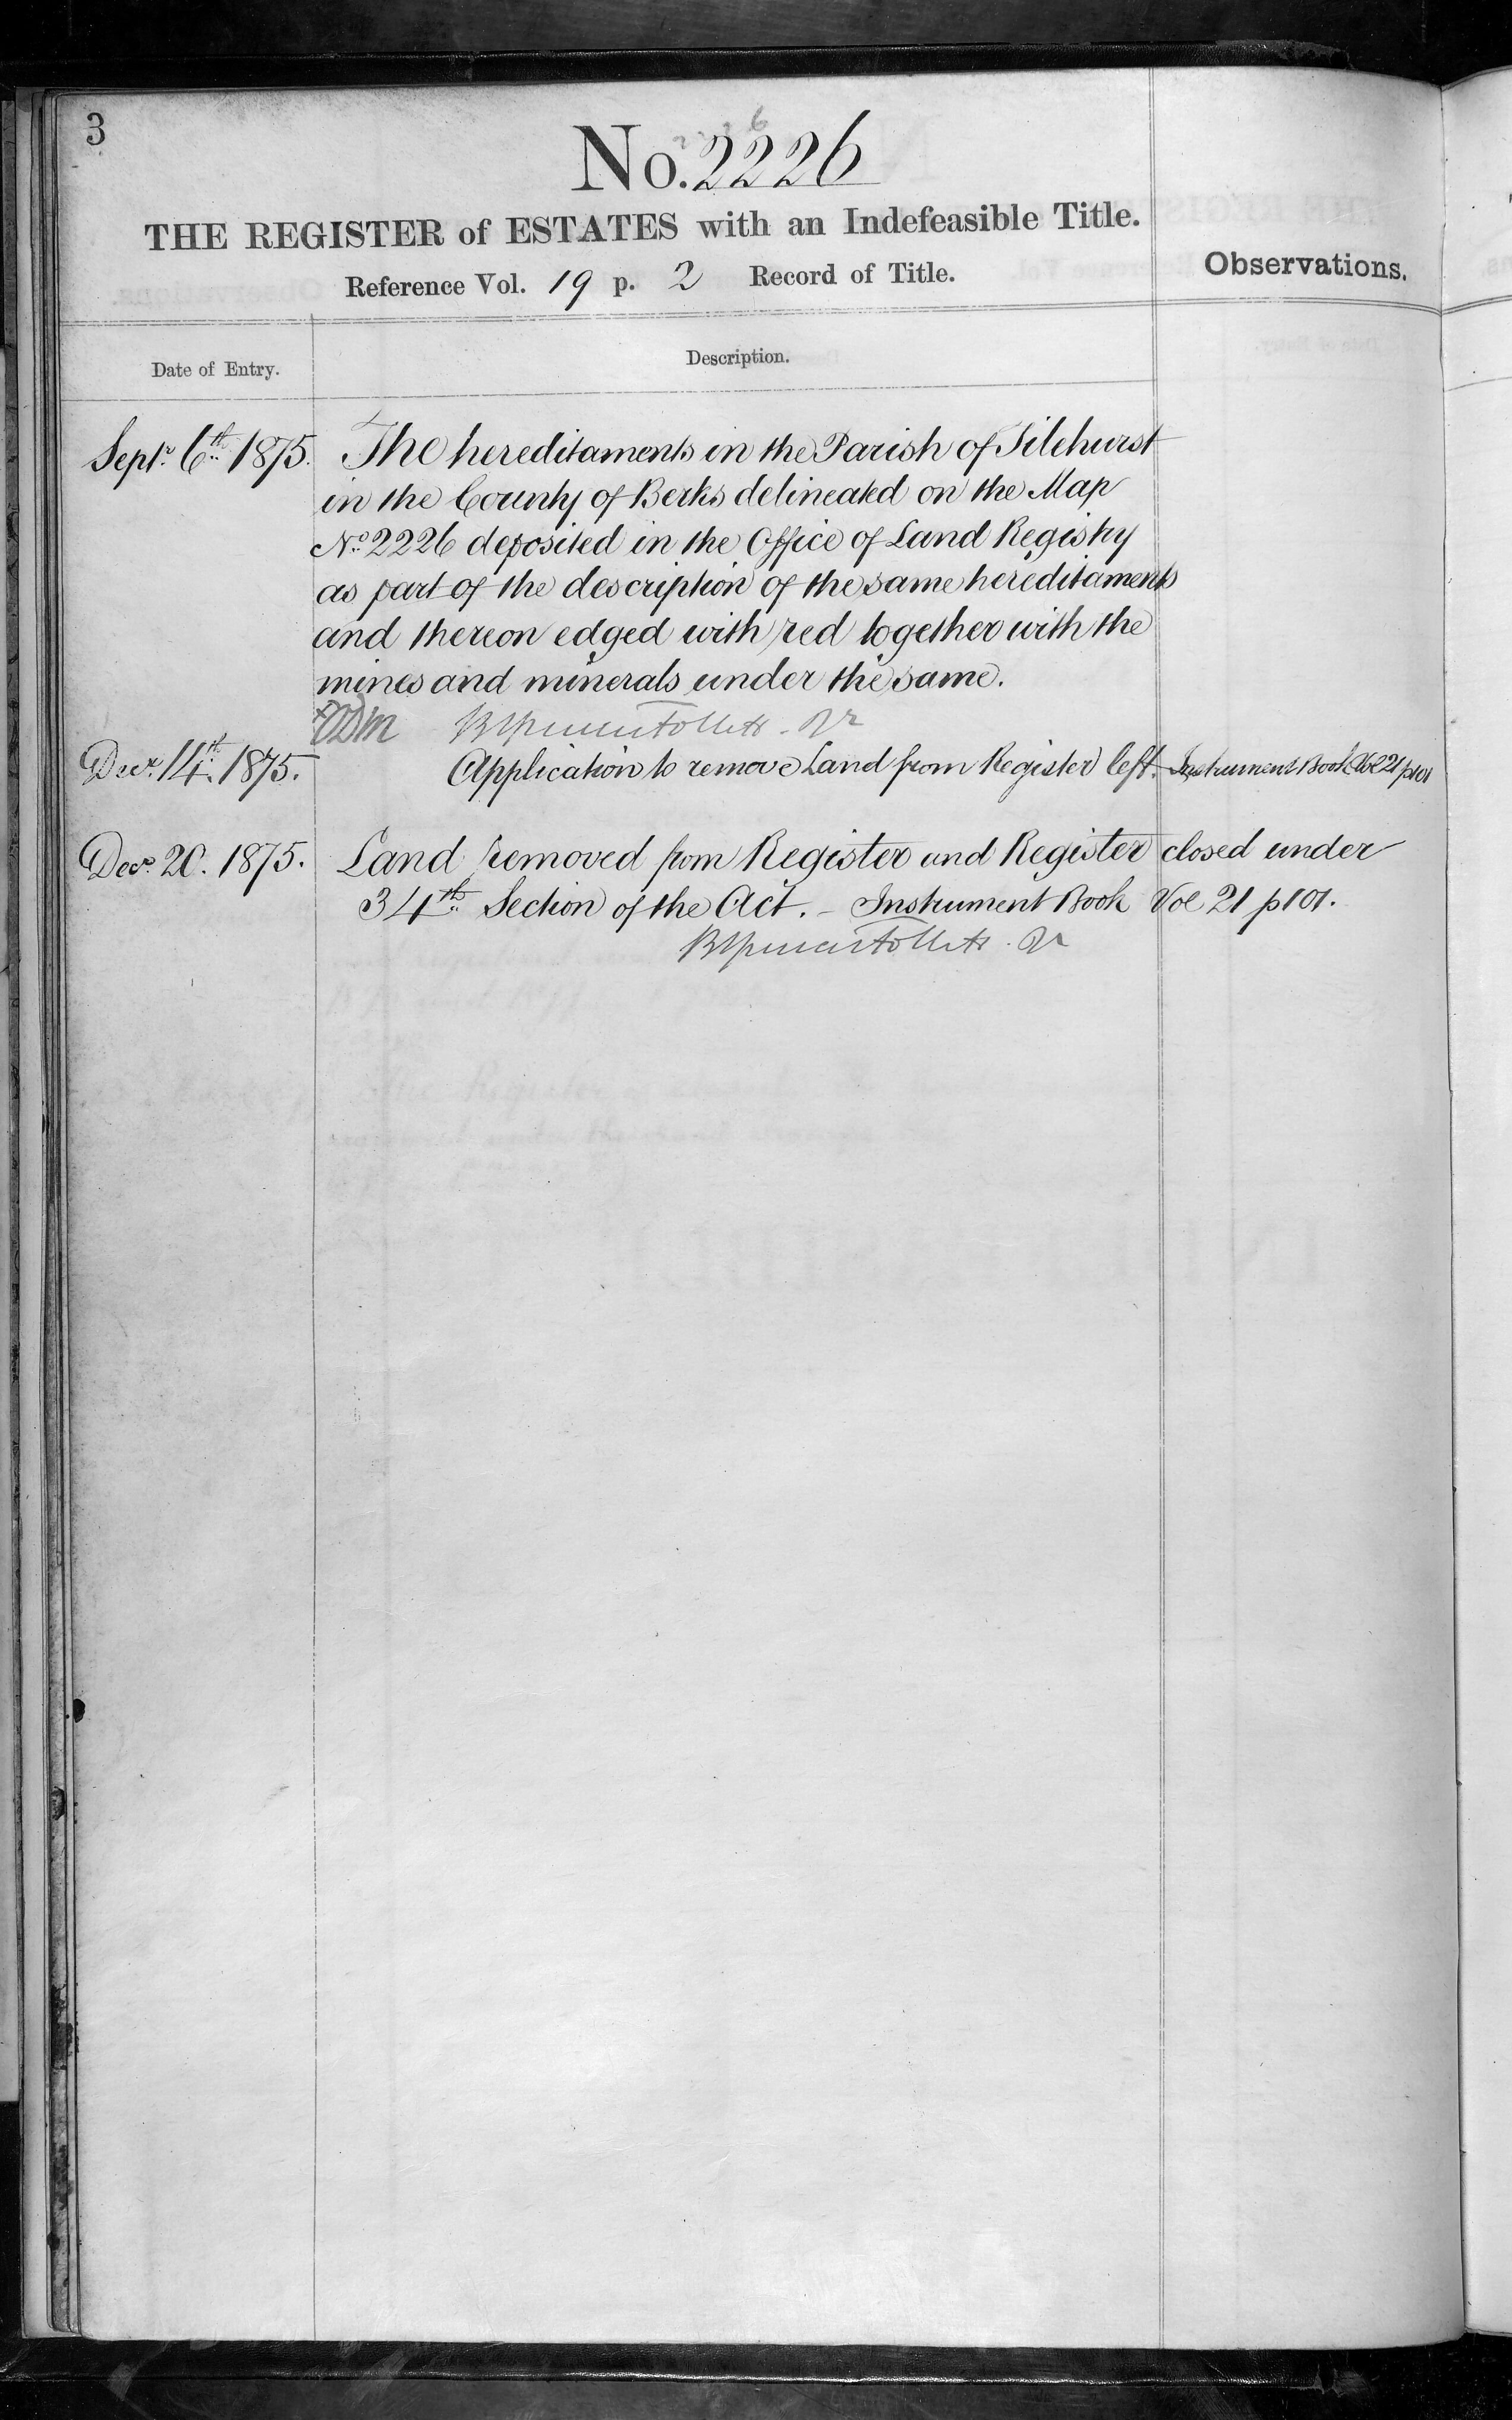 3
No. 2226
THE REGISTER of ESTATES with an Indefeasible Title.
Reference Vol. 19 p. 2 Record of Title.
Observations.
Date of Entry.
Description.
Septr. 6th 1875. The hereditaments in the Parish of Tilehurst
in the County of Berks delineated on the Map
No. 2226 deposited in the Office of Land Registry
as part of the description of the same hereditaments
and thereon edged with red together with the
mines and minerals under the same.
Decr. 14th 1875. Application to remove Land from Register left. Instrument Book Vol 21 p 101
Decr. 20. 1875. Land removed from Register and Register closed under
34th Section of the Act. - Instrument Book Vol 21 p 101.